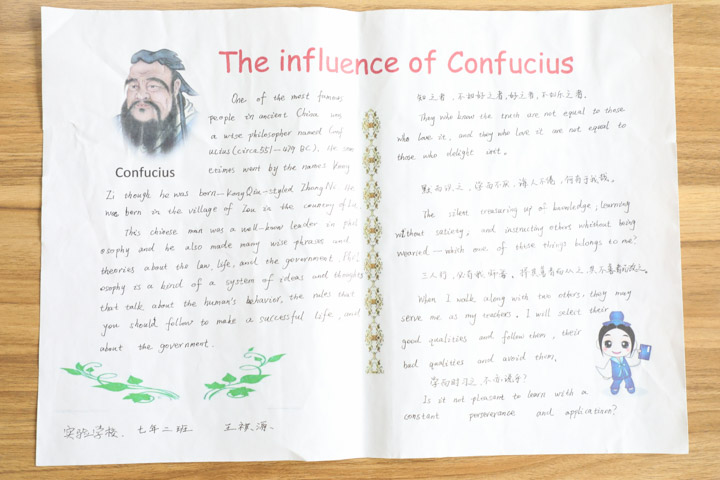 The influence of Confucius
Confucius
One of the most famous
people in ancient China was
a wise philosopher named Conf
ucius (circa 551-479 BC), the some
crimes went by the names Kong
Zi though he was born-Kong Qiu-styled Zhong Ni. He
was born in the village of Zou in the country of Lu.
This chinese man was a well-know leader in phil
osophy and he also made many wise phrases and
theories about the law, life, and the government. Phil
osophy is a kind of a system of ideas and thoughts
that talk about the human's behavior, the rules that
you should follow to make a successful life, and
about the government.
实验学校. 七年二班 王祺源.
知之者,不如好之者,好之者,不如乐之者.
They who know the truth are not equal to those
who love it, and they who love it are not equal to
those who delight in it.
默而识之,学而不厌,诲人不倦,何有于我哉.
The silent treasuring up of knowledge, learning
without satiety, and instructing others whithout being
wearied-which one of these things belongs to me?
三人行,必有我师焉. 择其善者而从之,其不善者而改之.
When I walk along with two others, they may
serve me as my teachers, I will select their
good qualities and follow them, their
bad qualities and avoid them.
学而时习之,不亦说乎?
Is it not pleasant to learn with a
constant perseverance and application?